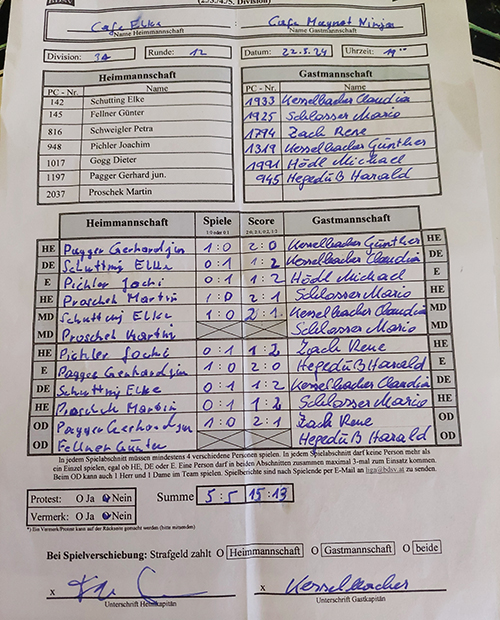 (2./3./4./5. Division)
Cafe Elke Cafe Maynot Ninja
Name Heimmannschaft Name Gastmannschaft
Division: Runde: 12 Datum: 22.5.24 Uhrzeit: 19°°
Heimmannschaft Gastmannschaft
PC - Nr. Name PC - Nr. Name
142 Schutting Elke 1933 Kesselbacher Claudia
145 Fellner Günter 1925 Schlosser Mario
816 Schweigler Petra 1794 Zach Rene
948 Pichler Joachim 1319 Kesselbacher Günther
1017 Gogg Dieter 1991 Hödl Michael
1197 Pagger Gerhard jun. 945 Hegedüß Harald
2037 Proschek Martin
Heimmannschaft Spiele Score Gastmannschaft
1:0 oder 0:1 2:0, 2:1, 0:2, 1:2
HE Pagger Gerhard jun 1:0 2:0 Kesselbacher Günther HE
DE Schutting Elke 0:1 1:2 Kesselbacher Claudia DE
E Pichler Jochi 0:1 1:2 Hödl Michael E
HE Proschek Martin 1:0 2:1 Schlosser Mario HE
MD Schutting Elke 1:0 2:1 Kesselbacher Claudia MD
MD Proschek Martin Schlosser Mario MD
HE Pichler Jochi 0:1 1:2 Zach Rene HE
E Pagger Gerhard jun 1:0 2:0 Hegedüß Harald E
DE Schutting Elke 0:1 1:2 Kesselbacher Claudia DE
HE Proschek Martin 0:1 1:2 Schlosser Mario HE
OD Pagger Gerhard jun 1:0 2:1 Zach Rene OD
OD Fellner Günter Hegedüß Harald OD
In jedem Spielabschnitt müssen mindestens 4 verschiedene Personen spielen. In jedem Spielabschnitt darf keine Person mehr als
ein Einzel spielen, egal ob HE, DE oder E. Eine Person darf in beiden Abschnitten zusammen maximal 3-mal zum Einsatz kommen.
Beim OD kann auch 1 Herr und 1 Dame im Team spielen. Spielberichte sind nach Spielende per E-Mail an liga@bdsv.at zu senden.
Protest: O Ja O Nein Summe 5:5 15:13
Vermerk: O Ja O Nein
*) Ein Vermerk/Protest kann auf der Rückseite gemacht werden (bitte mitsenden)
Bei Spielverschiebung: Strafgeld zahlt O Heimmannschaft O Gastmannschaft O beide
x x Kesselbacher
Unterschrift Heimkapitän Unterschrift Gastkapitän